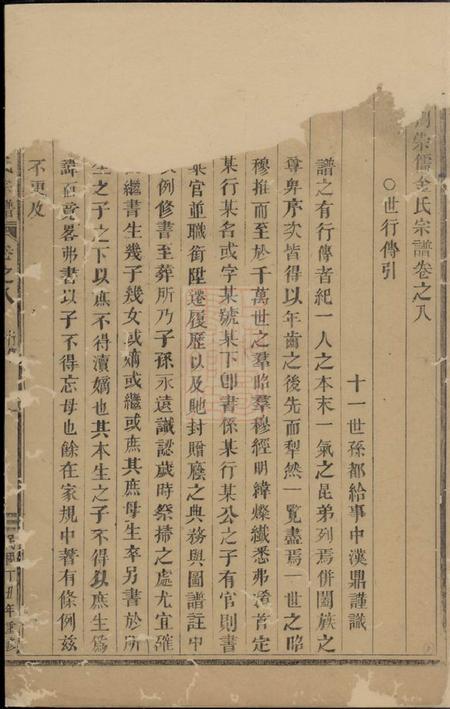 崇儒金氏宗譜卷之八
○世行傳引
十一世孫都給事中漢鼎謹識
譜之有行傳者紀一人之本末一氣之昆弟列焉併闔族之
尊卑序次皆得以年齒之後先而犁然一覽盡焉一世之昭
穆推而至於千萬世之羣昭羣穆經明緯燦纖悉弗淆首定
某行某名或字某號某下卽書係某行某公之子有官則書
某官並職銜陞遷履歷以及貤封贈廕之典務與圖譜註中
例修書至葬所乃子孫永遠識認歲時祭掃之處尤宜確
繼書生幾子幾女或嫡或繼或庶其庶母生卒另書於所
生之子之下以庶不得瀆嫡也其本生之子不得以庶生爲
諱而竟畧弗書以子不得忘母也餘在家規中著有條例茲
不更及
氏宗譜 卷之八
民國丁丑年重修